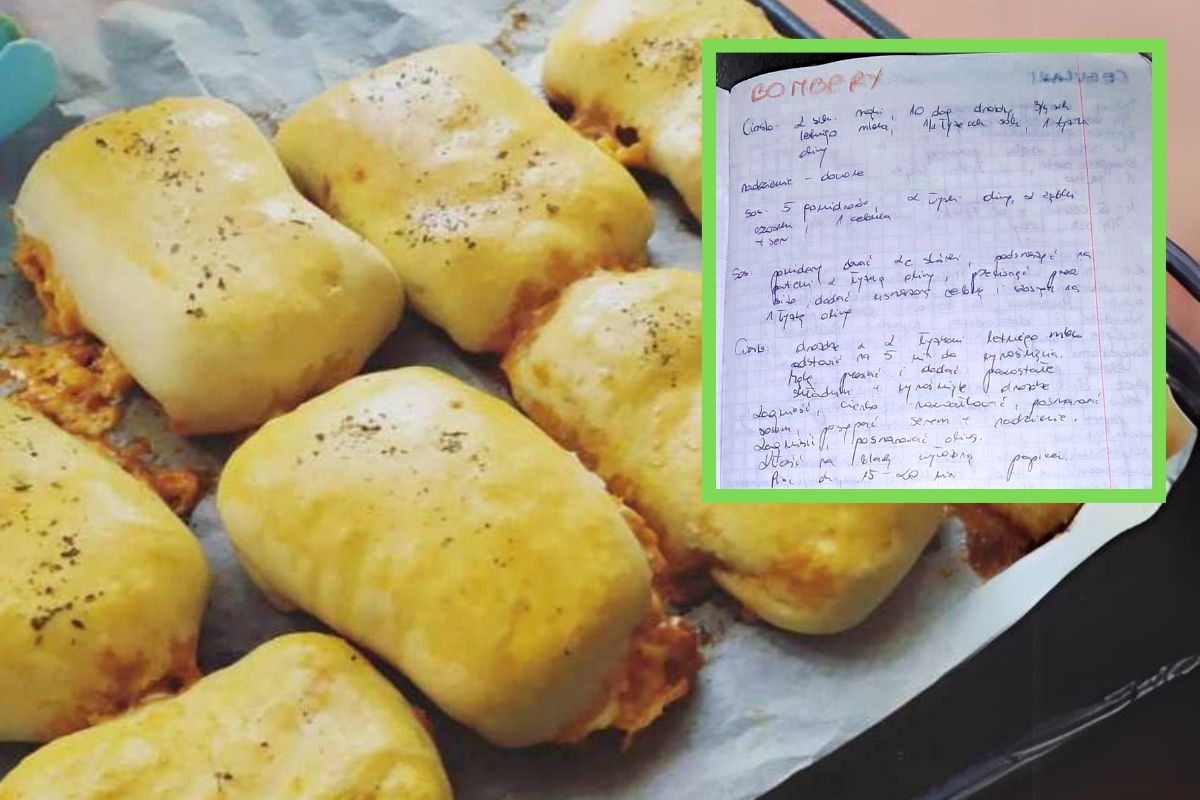 BOMBERY
CEBULAKI
Ciasto: 2 szk. mąki, 10 dag drożdży, 3/4 szk
letniego mleka, soli, 1 łyżka
oliwy
nadzienie - dowolne
Sos: 5 pomidorów, 2 łyżki oliwy, 2 ząbki
czosnku, 1 cebula
+ ser
Sos: pomidory ze skórki, podsmażyć na
patelni z łyżką oliwy, przetrzeć przez
sito, dodać usmażoną cebulę i czosnek na
1 łyżce oliwy
Ciasto: drożdże z 2 łyżkami letniego mleka
odstawić na 5 min do wyrośnięcia.
Mąkę przesiać i dodać pozostałe
składniki + wyrośnięte drożdże
Zagnieść, ciasto rozwałkować, posmarować
sosem, posypać serem + nadzienie.
posmarować oliwą.
na blachę papierem.
Piec ok. 15-20 min